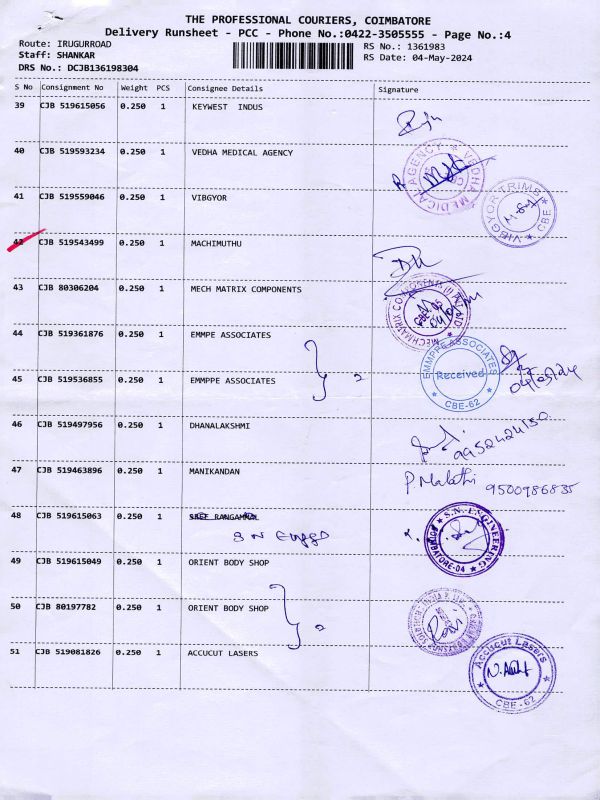 THE PROFESSIONAL COURIERS, COIMBATORE
Delivery Runsheet - PCC - Phone No.:0422-3505555 - Page No.:4
Route: IRUGURROAD RS No.: 1361983
Staff: SHANKAR RS Date: 04-May-2024
DRS No.: DCJB136198304
S No Consignment No Weight PCS Consignee Details Signature
39 CJB 519615056 0.250 1 KEYWEST INDUS
40 CJB 519593234 0.250 1 VEDHA MEDICAL AGENCY
VEDHA MEDICAL AGENCY
41 CJB 519559046 0.250 1 VIBGYOR
VIBGYOR TRIMS CBE
42 CJB 519543499 0.250 1 MACHIMUTHU
43 CJB 80306204 0.250 1 MECH MATRIX COMPONENTS
44 CJB 519361876 0.250 1 EMMPE ASSOCIATES
EMMPPE ASSOCIATES
Received
CBE-62
04/05/24
45 CJB 519536855 0.250 1 EMMPPE ASSOCIATES
2
46 CJB 519497956 0.250 1 DHANALAKSHMI
9952424150
47 CJB 519463896 0.250 1 MANIKANDAN P. Malathi 9500986835
48 CJB 519615063 0.250 1 SREE RANGAMMAL
S N Enggs
S.N. ENGINEERING
COIMBATORE-04
49 CJB 519615049 0.250 1 ORIENT BODY SHOP
50 CJB 80197782 0.250 1 ORIENT BODY SHOP
2
51 CJB 519081826 0.250 1 ACCUCUT LASERS
Accucut Lasers
CBE-62